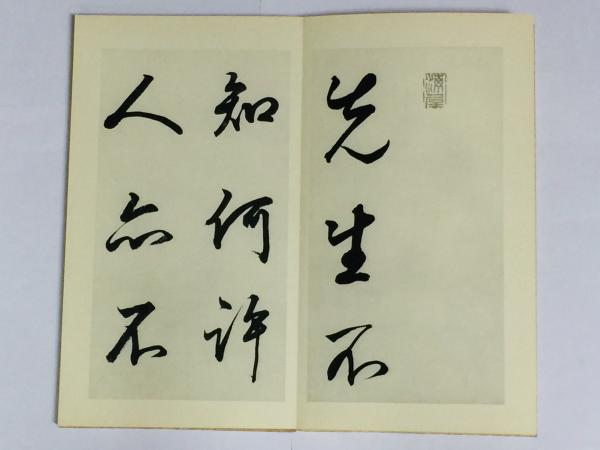 先生不
知何許
人亦不